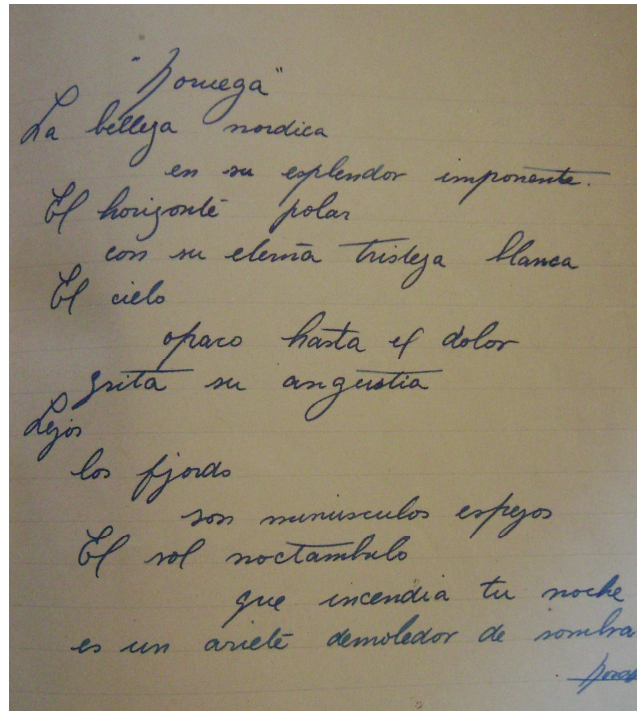 "Noruega"
La belleza nordica
en su esplendor imponente.
El horizonte polar
con su eterna tristeza blanca
El cielo
opaco hasta el dolor
grita su angustia
Lejos
los fjords
son minusculos espejos
El sol noctambulo
que incendia tu noche
es un ariete demoledor de sombra